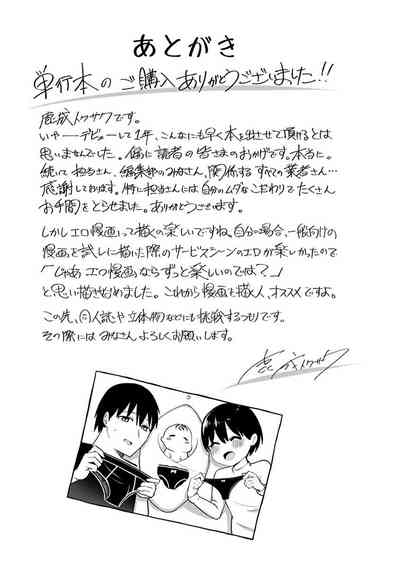 あとがき
単行本のご購入ありがとうございました!!
鹿成トクサクです。
いやーデビューして1年、こんなにも早く本を出させて頂けるとは
思いませんでした。偏に読者の皆さまのおかげです。本当に。
続いて担当さん、編集部のみなさん、関係するすべての業者さん…
感謝しております。特に担当さんには自分のムダなこだわりでたくさん
お手間をとらせました。ありがとうございます。
しかしエロ漫画って描くの楽しいですね。自分の場合、一般向けの
漫画を試しに描いた際のサービスシーンのエロが楽しかったので
「じゃあエロ漫画ならずっと楽しいのでは?…」
と思い描き始めました。これから漫画を描く人、オススメですよ。
この先、同人誌や立体物などにも挑戦するつもりです。
その際にはみなさんよろしくお願いします。